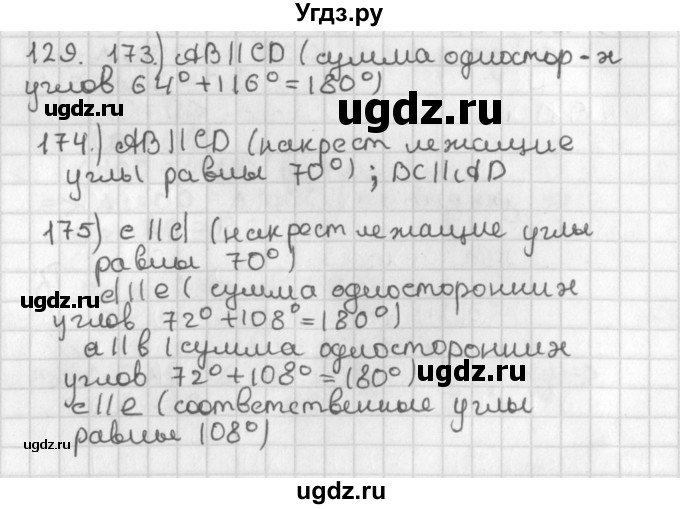 Угдз.ру
129. 173.) AB||CD (сумма одностор-х
углов 64°+116°=180°)
ugdz.ru
ugdz.ru
174.) AB||CD (накрест лежащие
углы равны 70°); BC||AD
ugdz.ru
175) c||d (накрест лежащие углы
равны 70°)
ugdz.ru
d||e (сумма односторонних
ugdz.ru
углов 72°+108°=180°)
a||b (сумма односторонних
ugdz.ru
углов 72°+108°=180°)
c||e (соответственные углы
равны 108°)
ugdz.ru
ugdz.ru
ugdz.ru